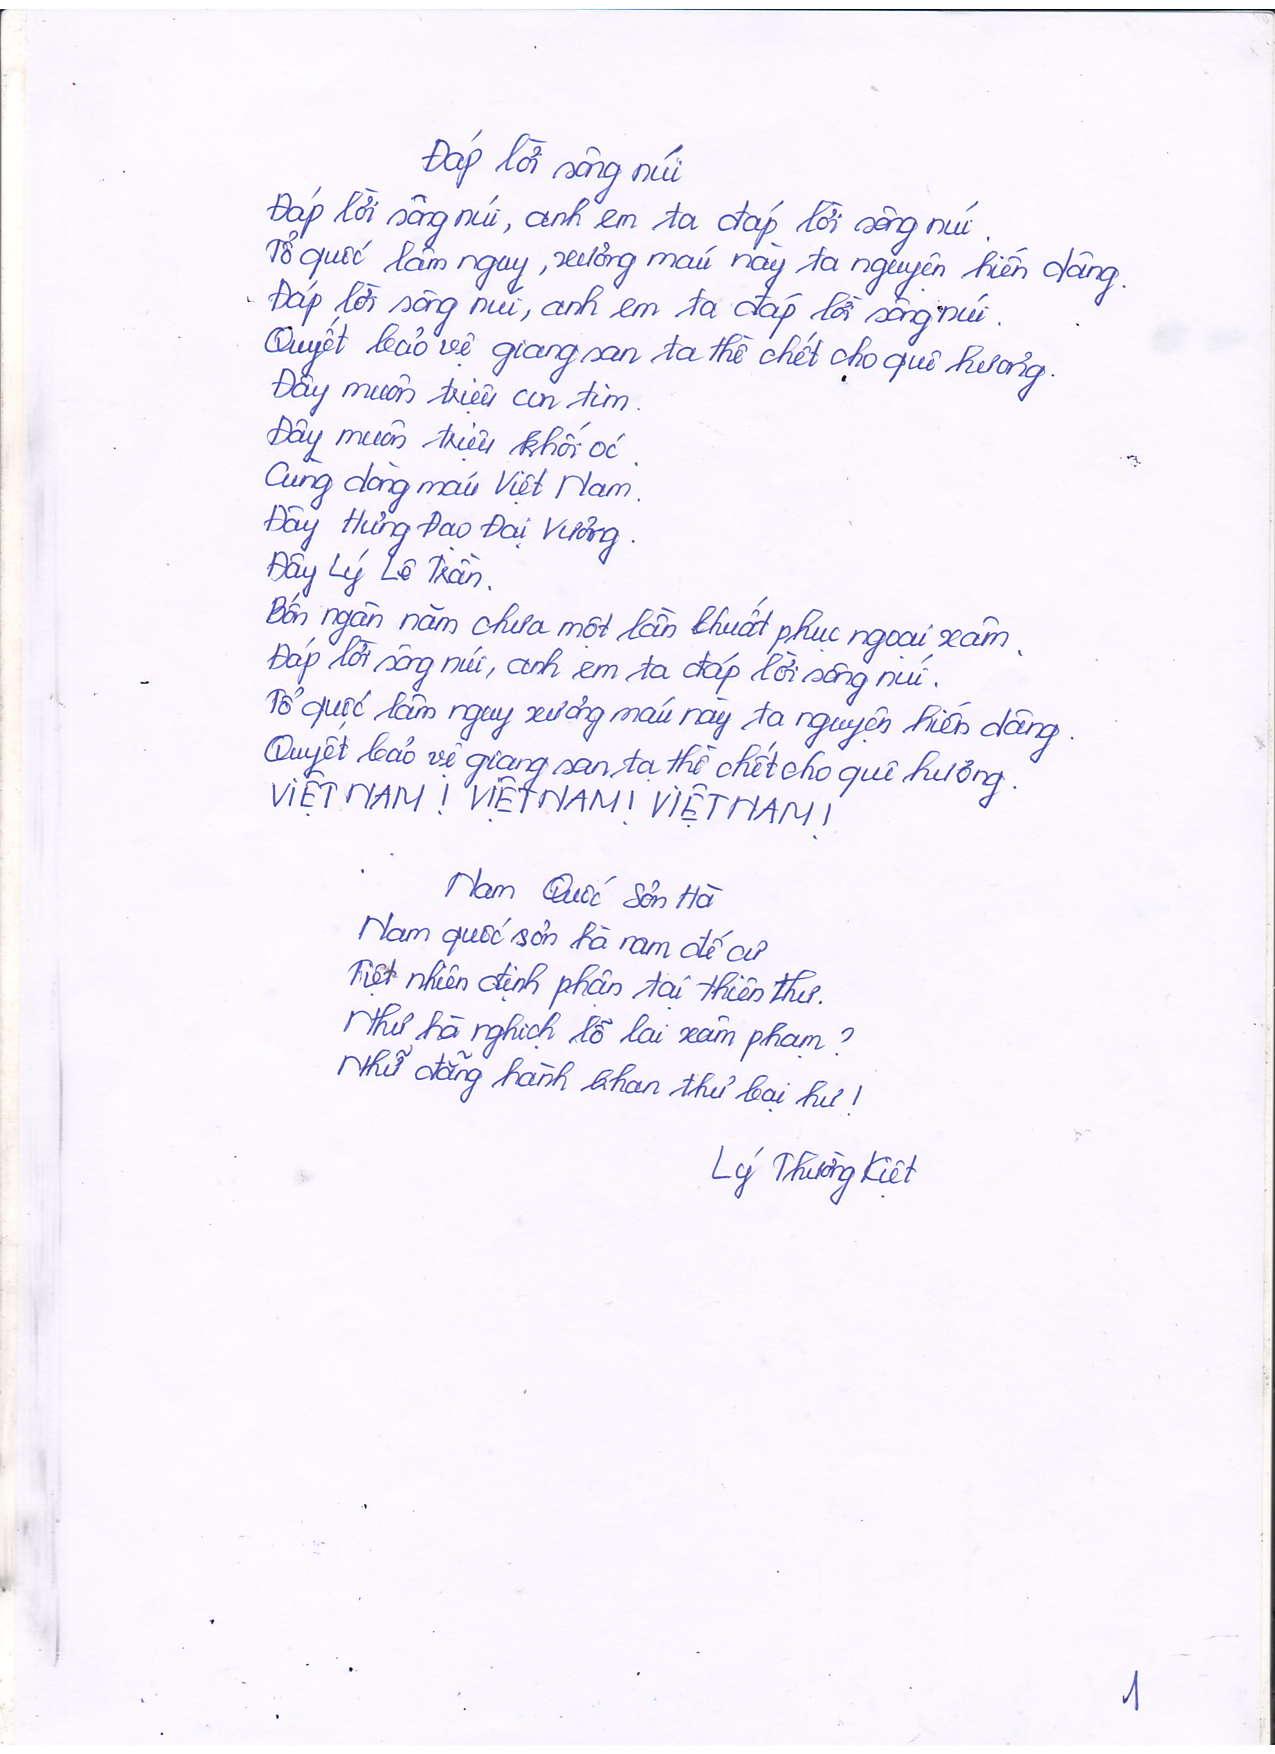 Đáp lời sông núi
Đáp lời sông núi, anh em ta đáp lời sông núi.
Tổ quốc lâm nguy, xương máu này ta nguyện hiến dâng.
Đáp lời sông núi, anh em ta đáp lời sông núi.
Quyết bảo vệ giang san ta thề chết cho quê hương.
Đây muôn triệu con tim.
Đây muôn triệu khối óc.
Cùng dòng máu Việt Nam.
Đây Hưng Đạo Đại Vương.
Đây Lý Lê Trần.
Bốn ngàn năm chưa một lần khuất phục ngoại xâm.
Đáp lời sông núi, anh em ta đáp lời sông núi.
Tổ quốc lâm nguy xương máu này ta nguyện hiến dâng.
Quyết bảo vệ giang san ta thề chết cho quê hương.
VIỆT NAM! VIỆT NAM! VIỆT NAM!
Nam Quốc Sơn Hà
Nam quốc sơn hà nam đế cư
Tiệt nhiên định phận tại thiên thư.
Như hà nghịch lỗ lai xâm phạm?
Nhữ đẳng hành khan thư bại hư!
Lý Thường Kiệt
1